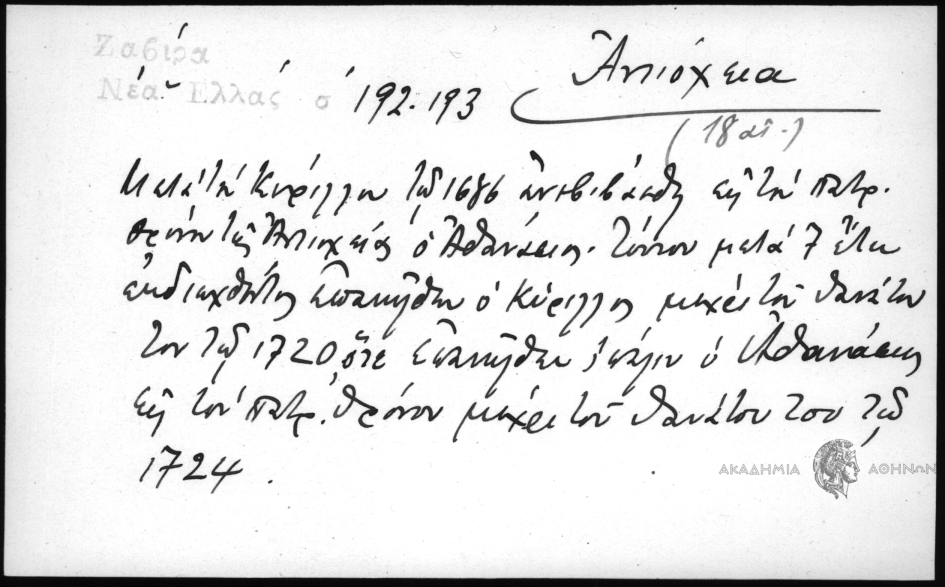 Ζαβίρα
Νέα Ἑλλάς σ 192-193
Ἀντιόχεια
(18 αἰ.)
Μετά τὸν Κύριλλον τῷ 1686 ἀνεβιβάσθη εἰς τὸν πατρ.
θρόνον τῆς Ἀντιοχείας ὁ Ἀθανάσιος. Τούτου μετά 7 ἔτη
ἐκδιωχθέντος ἐπανῆλθεν ὁ Κύριλλος μέχρι τοῦ θανάτου
του τῷ 1720, ὅτε ἐπανῆλθεν πάλιν ὁ Ἀθανάσιος
εἰς τὸν πατρ. θρόνον μέχρι τοῦ θανάτου του τῷ
1724.
ΑΚΑΔΗΜΙΑ ΑΘΗΝΩΝ